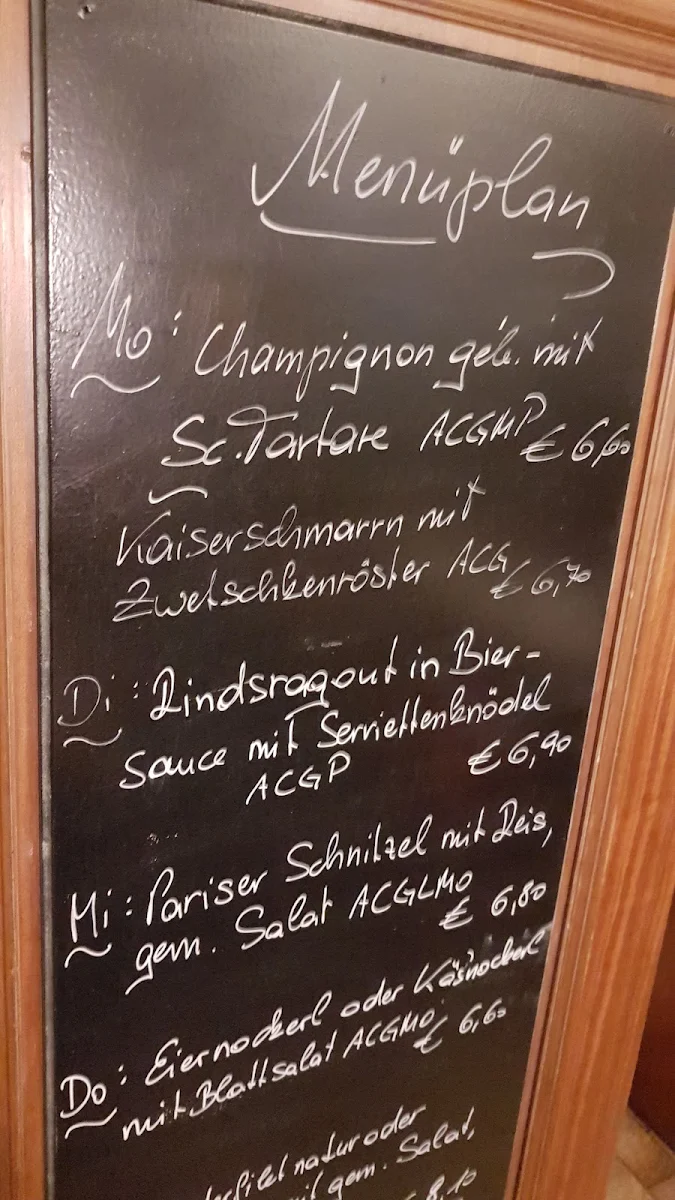 Menüplan
Mo: Champignon geb. mit
Sc. Tartare ACGMP € 6,60
Kaiserschmarrn mit
Zwetschkenröster ACG € 6,70
Di: Rindsragout in Bier-
sauce mit Serviettenknödel
ACGP € 6,90
Mi: Pariser Schnitzel mit Reis,
gem. Salat ACGLMO
€ 6,80
Do: Eiernockerl oder Käsnockerl
mit Blattsalat ACGMO € 6,60
natur oder
gem. Salat,
8,10